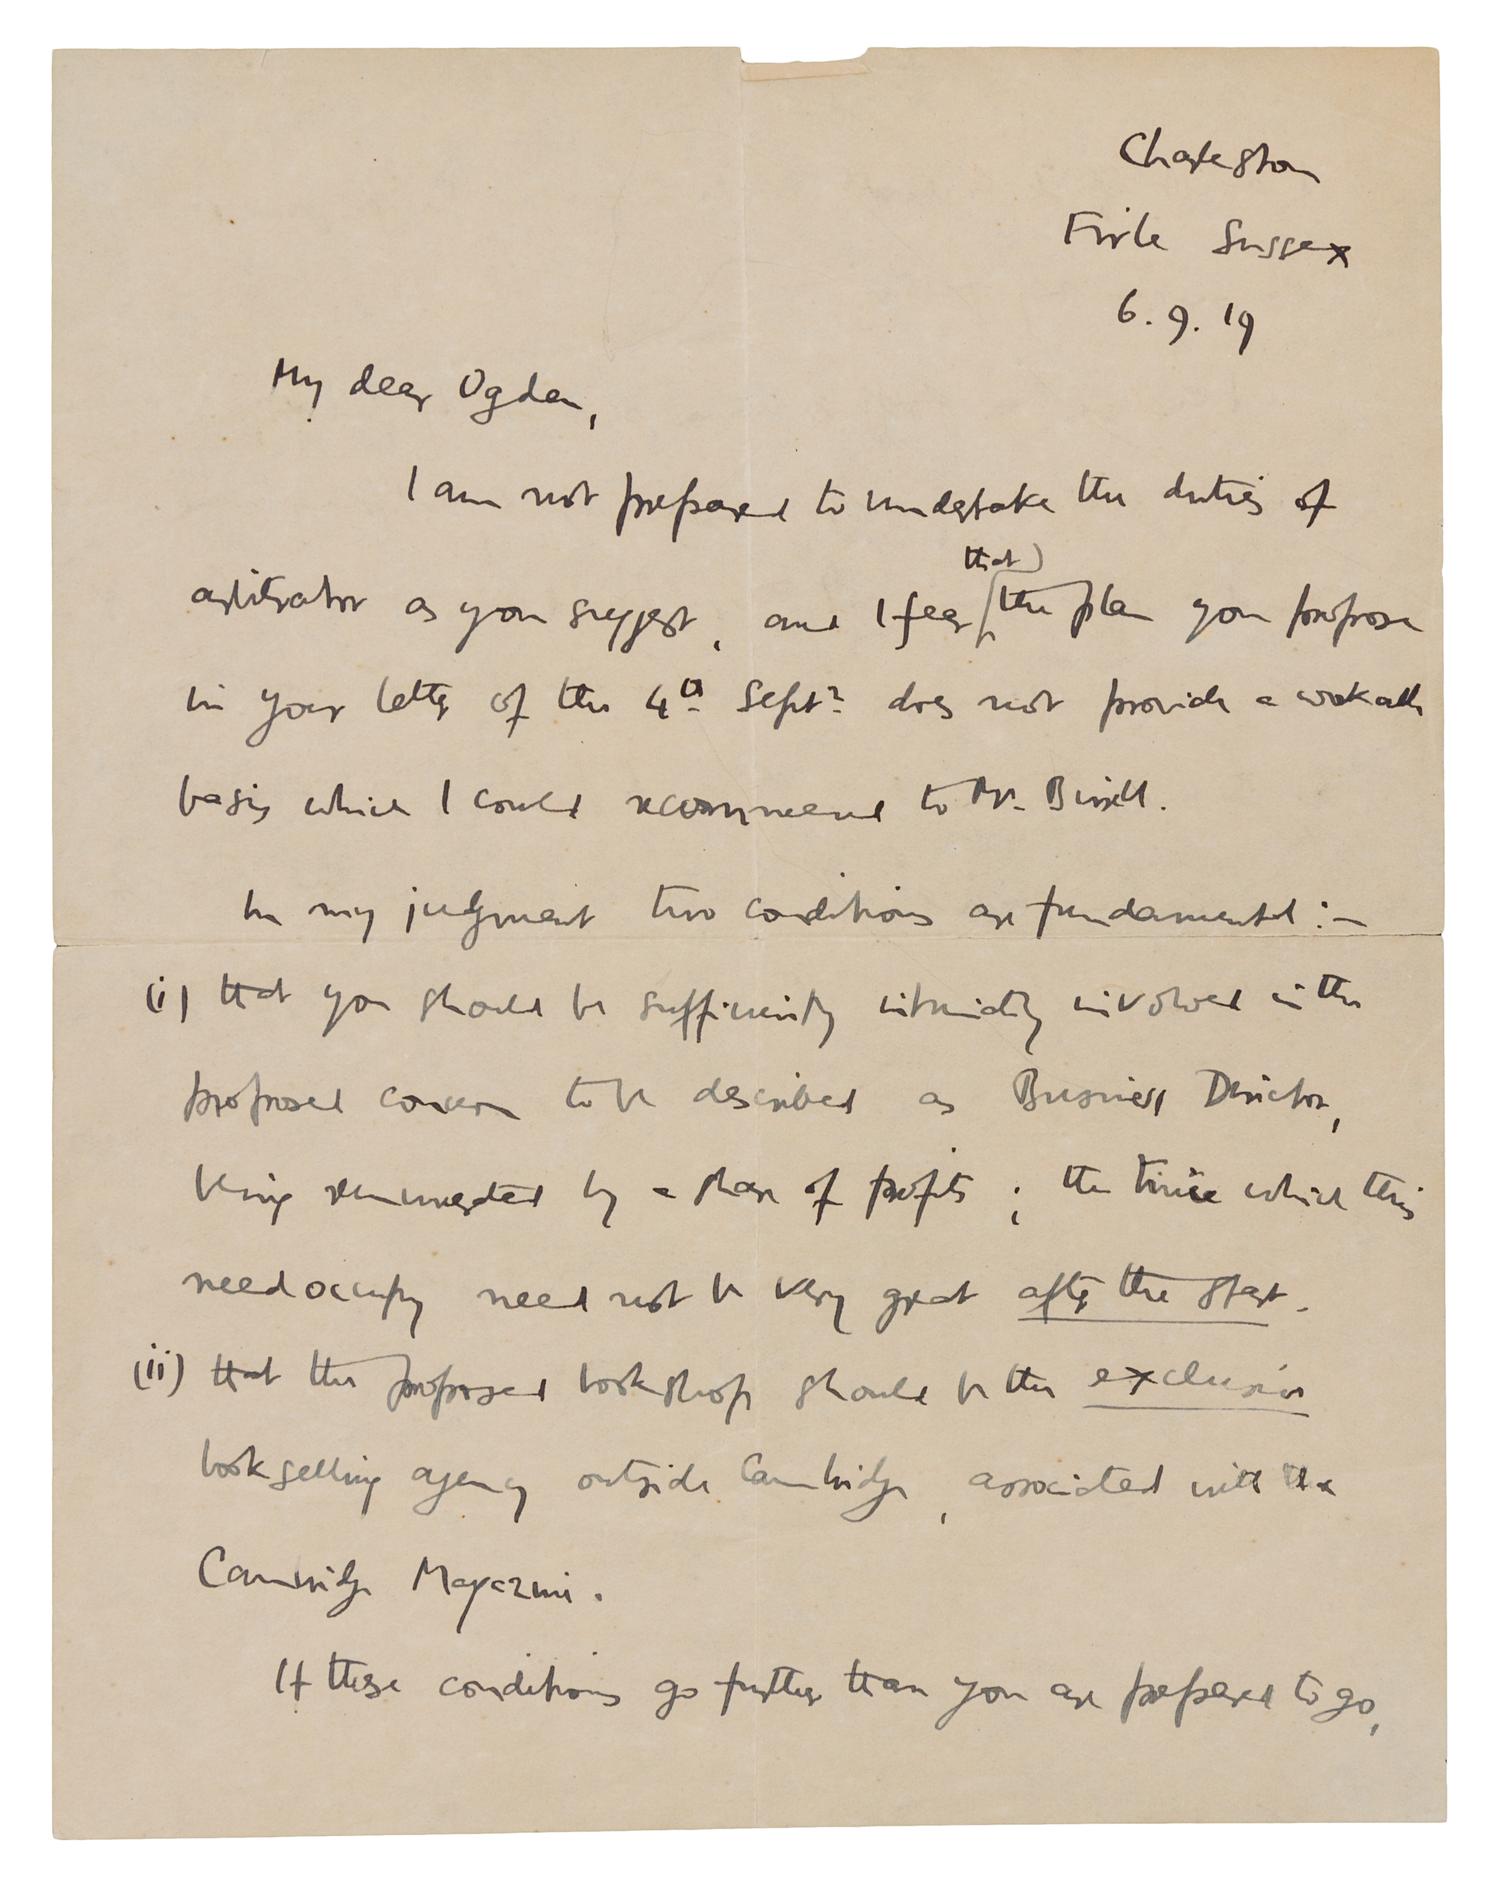 Charleston
Firle Sussex
6. 9. 19
My dear Ogden,
I am not prepared to undertake the duties of
arbitrator as you suggest, and I fear that the plan you propose
in your letter of the 4th Septr does not provide a workable
basis which I could recommend to Mr. Birrell.
In my judgment two conditions are fundamental :—
(i) that you should be sufficiently intimately involved in the
proposed concern to be described as Business Director,
being remunerated by a share of profits ; the time which this
need occupy need not be very great after the start.
(ii) that the proposed bookshop should be the exclusive
bookselling agency outside Cambridge, associated with the
Cambridge Magazine.
If these conditions go further than you are prepared to go,